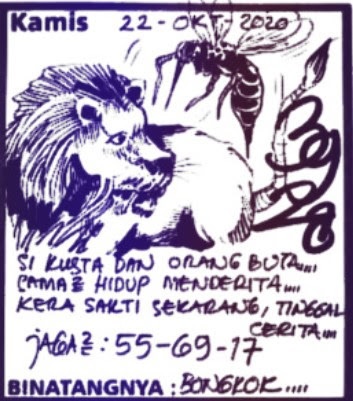 Kamis 22-OKT-2020
SI KUSTA DAN ORANG BUTA....
SAMA2 HIDUP MENDERITA....
KERA SAKTI SEKARANG, TINGGAL
CERITA....
JAGA2: 55-69-17
BINATANGNYA : BONGKOK....